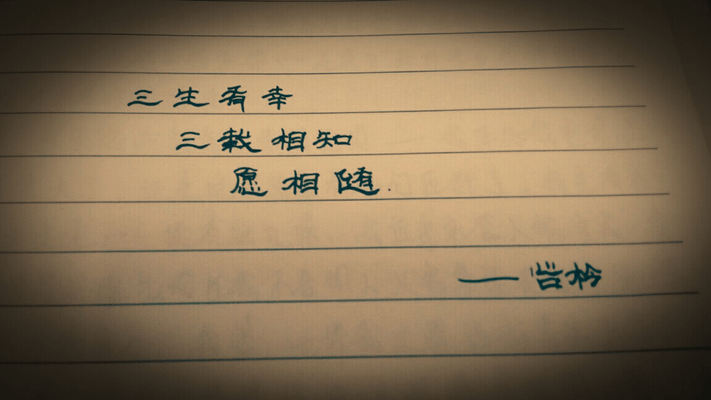 三生有幸
三载相知
愿相随.
——